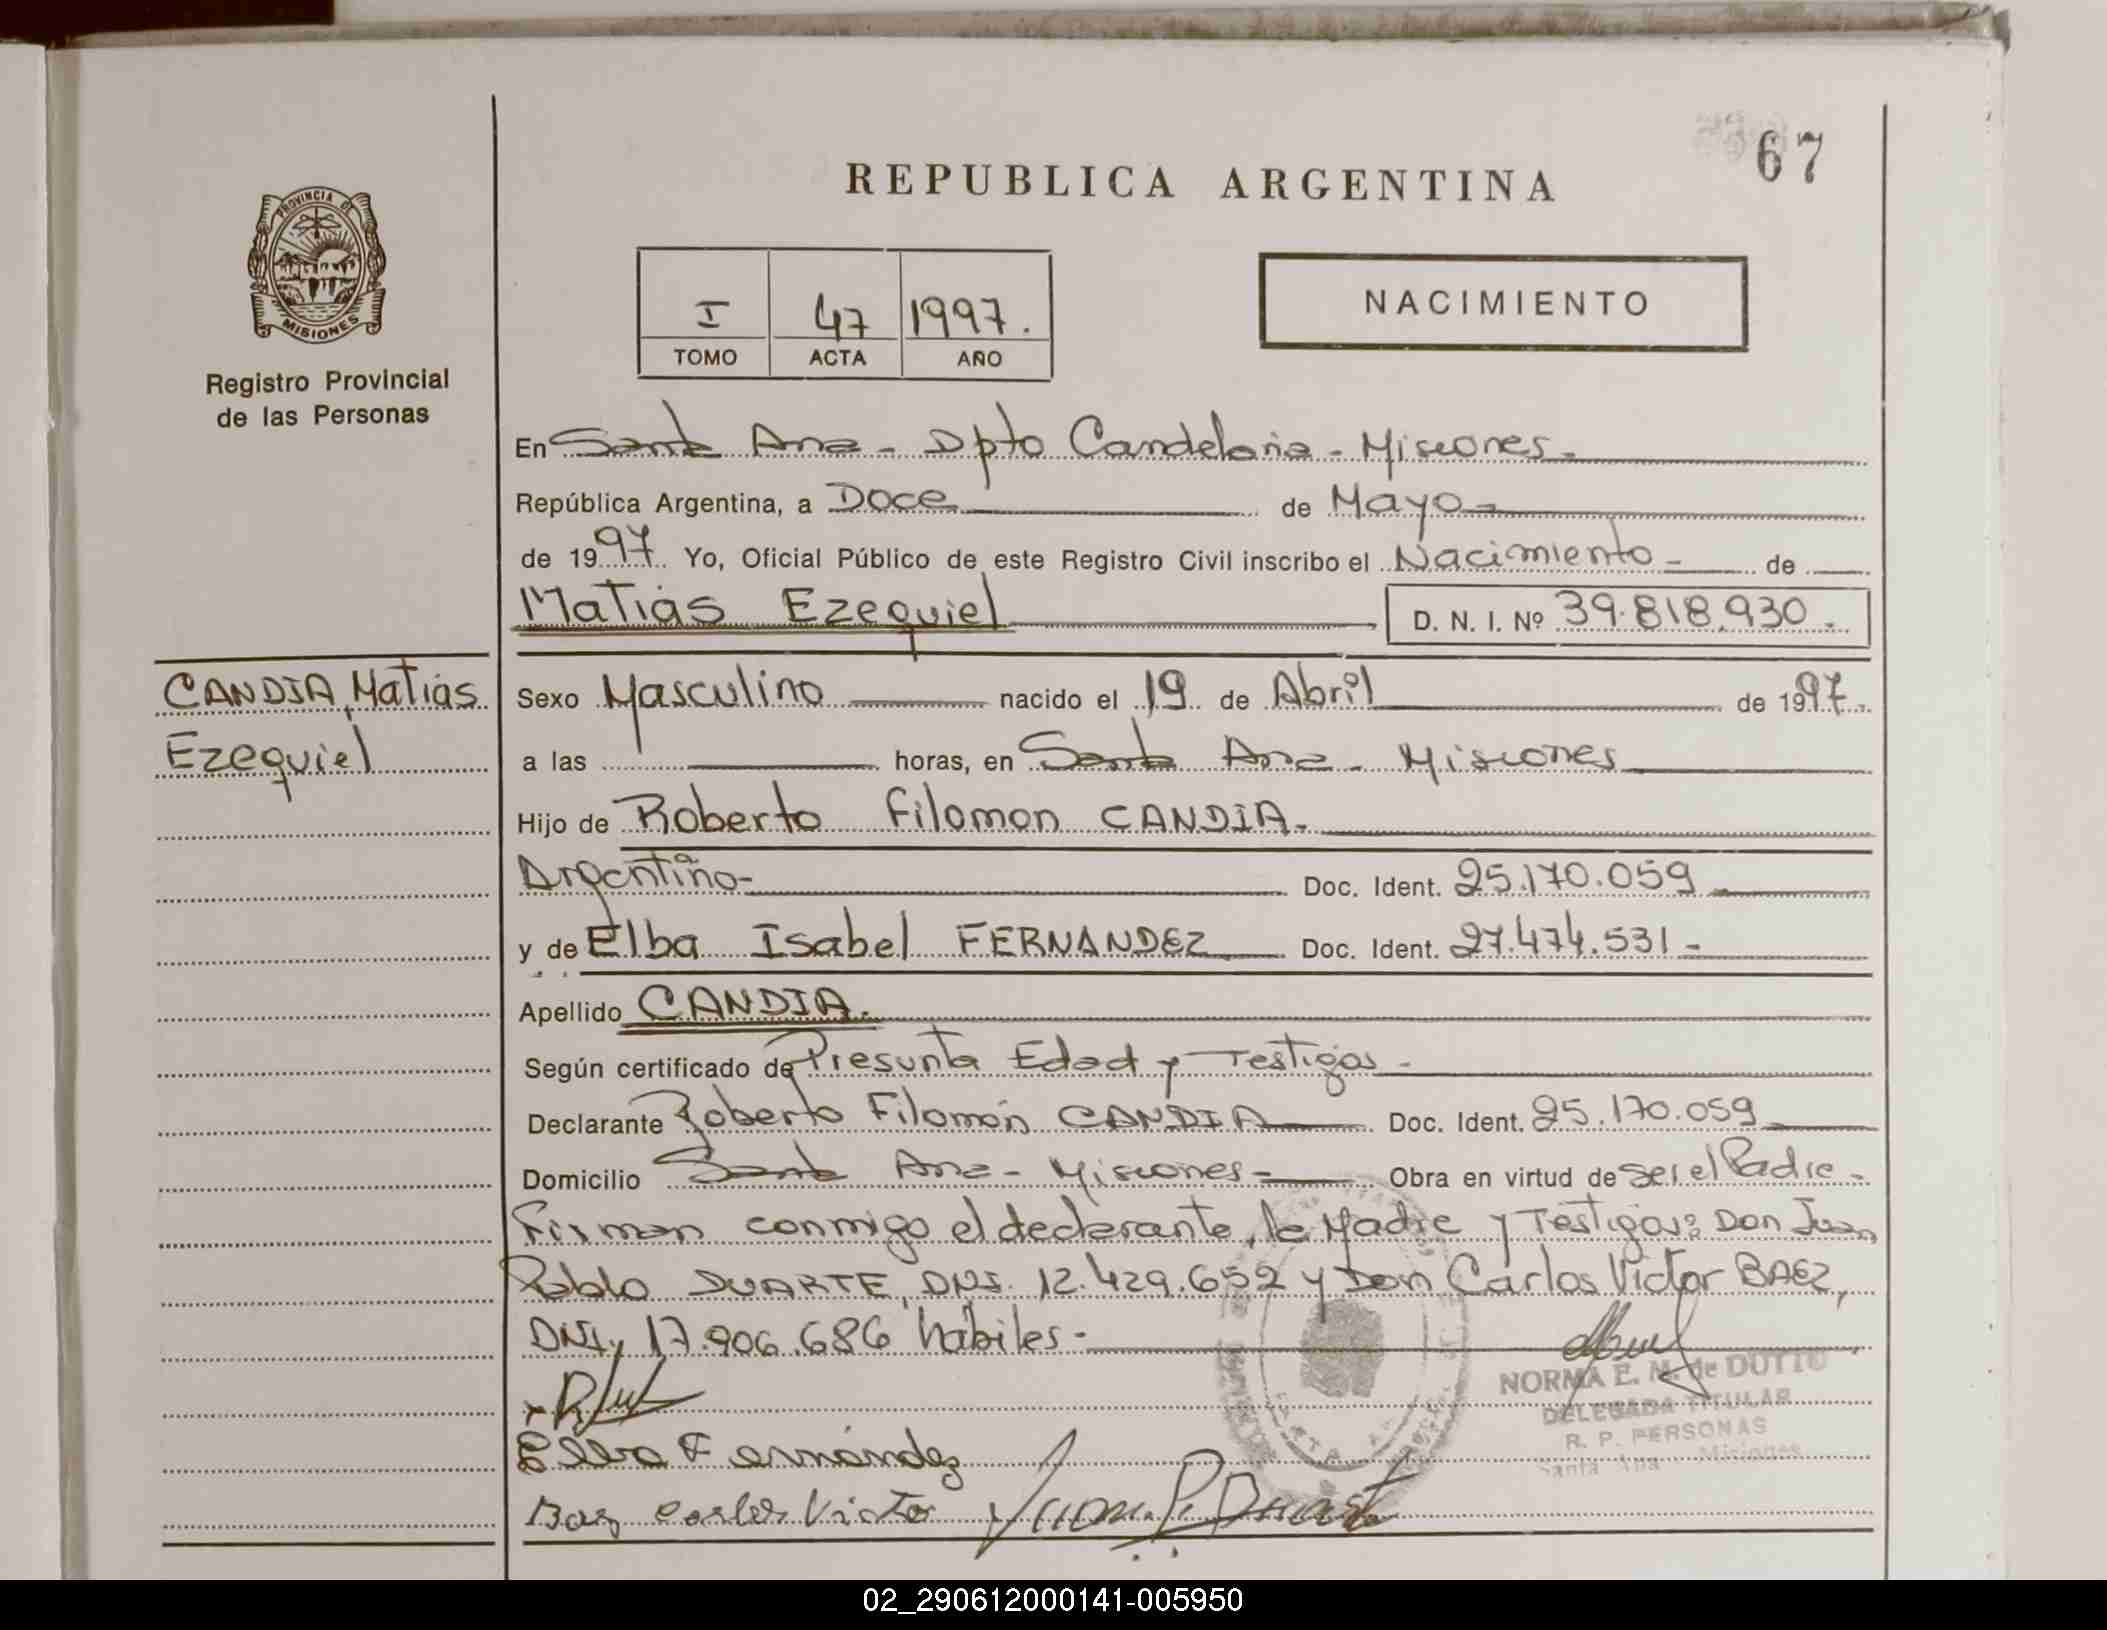 67
REPUBLICA ARGENTINA
PROVINCIA DE
MISIONES
Registro Provincial
de las Personas
I 47 1997.
TOMO ACTA AÑO
NACIMIENTO
En Santa Ana - Dpto Candelaria - Misiones -
República Argentina, a Doce de Mayo -
de 1997 Yo, Oficial Público de este Registro Civil inscribo el Nacimiento - de
Matias Ezequiel D. N. I. Nº 39.818.930 -
CANDIA, Matias
Ezequiel
Sexo Masculino nacido el 19 de Abril de 1997.
a las horas, en Santa Ana - Misiones
Hijo de Roberto Filomon CANDIA -
Argentino - Doc. Ident. 25.170.059
y de Elba Isabel FERNANDEZ Doc. Ident. 27.474.531 -
Apellido CANDIA.
Según certificado de Presunta Edad y Testigos -
Declarante Roberto Filomón CANDIA Doc. Ident. 25.170.059
Domicilio Santa Ana - Misiones - Obra en virtud de ser el Padre -
Firman conmigo el declarante, la Madre y Testigos: Don Juan
Pablo DUARTE, DNI. 12.429.652 y Don Carlos Victor BAEZ,
DNI, 17.906.686 hábiles -
NORMA E. M. de DOTTO
DELEGADA TITULAR
R. P. PERSONAS
Santa Ana - Misiones
Elba Fernández
Baez Carlos Victor Juan P. Duarte
02_290612000141-005950